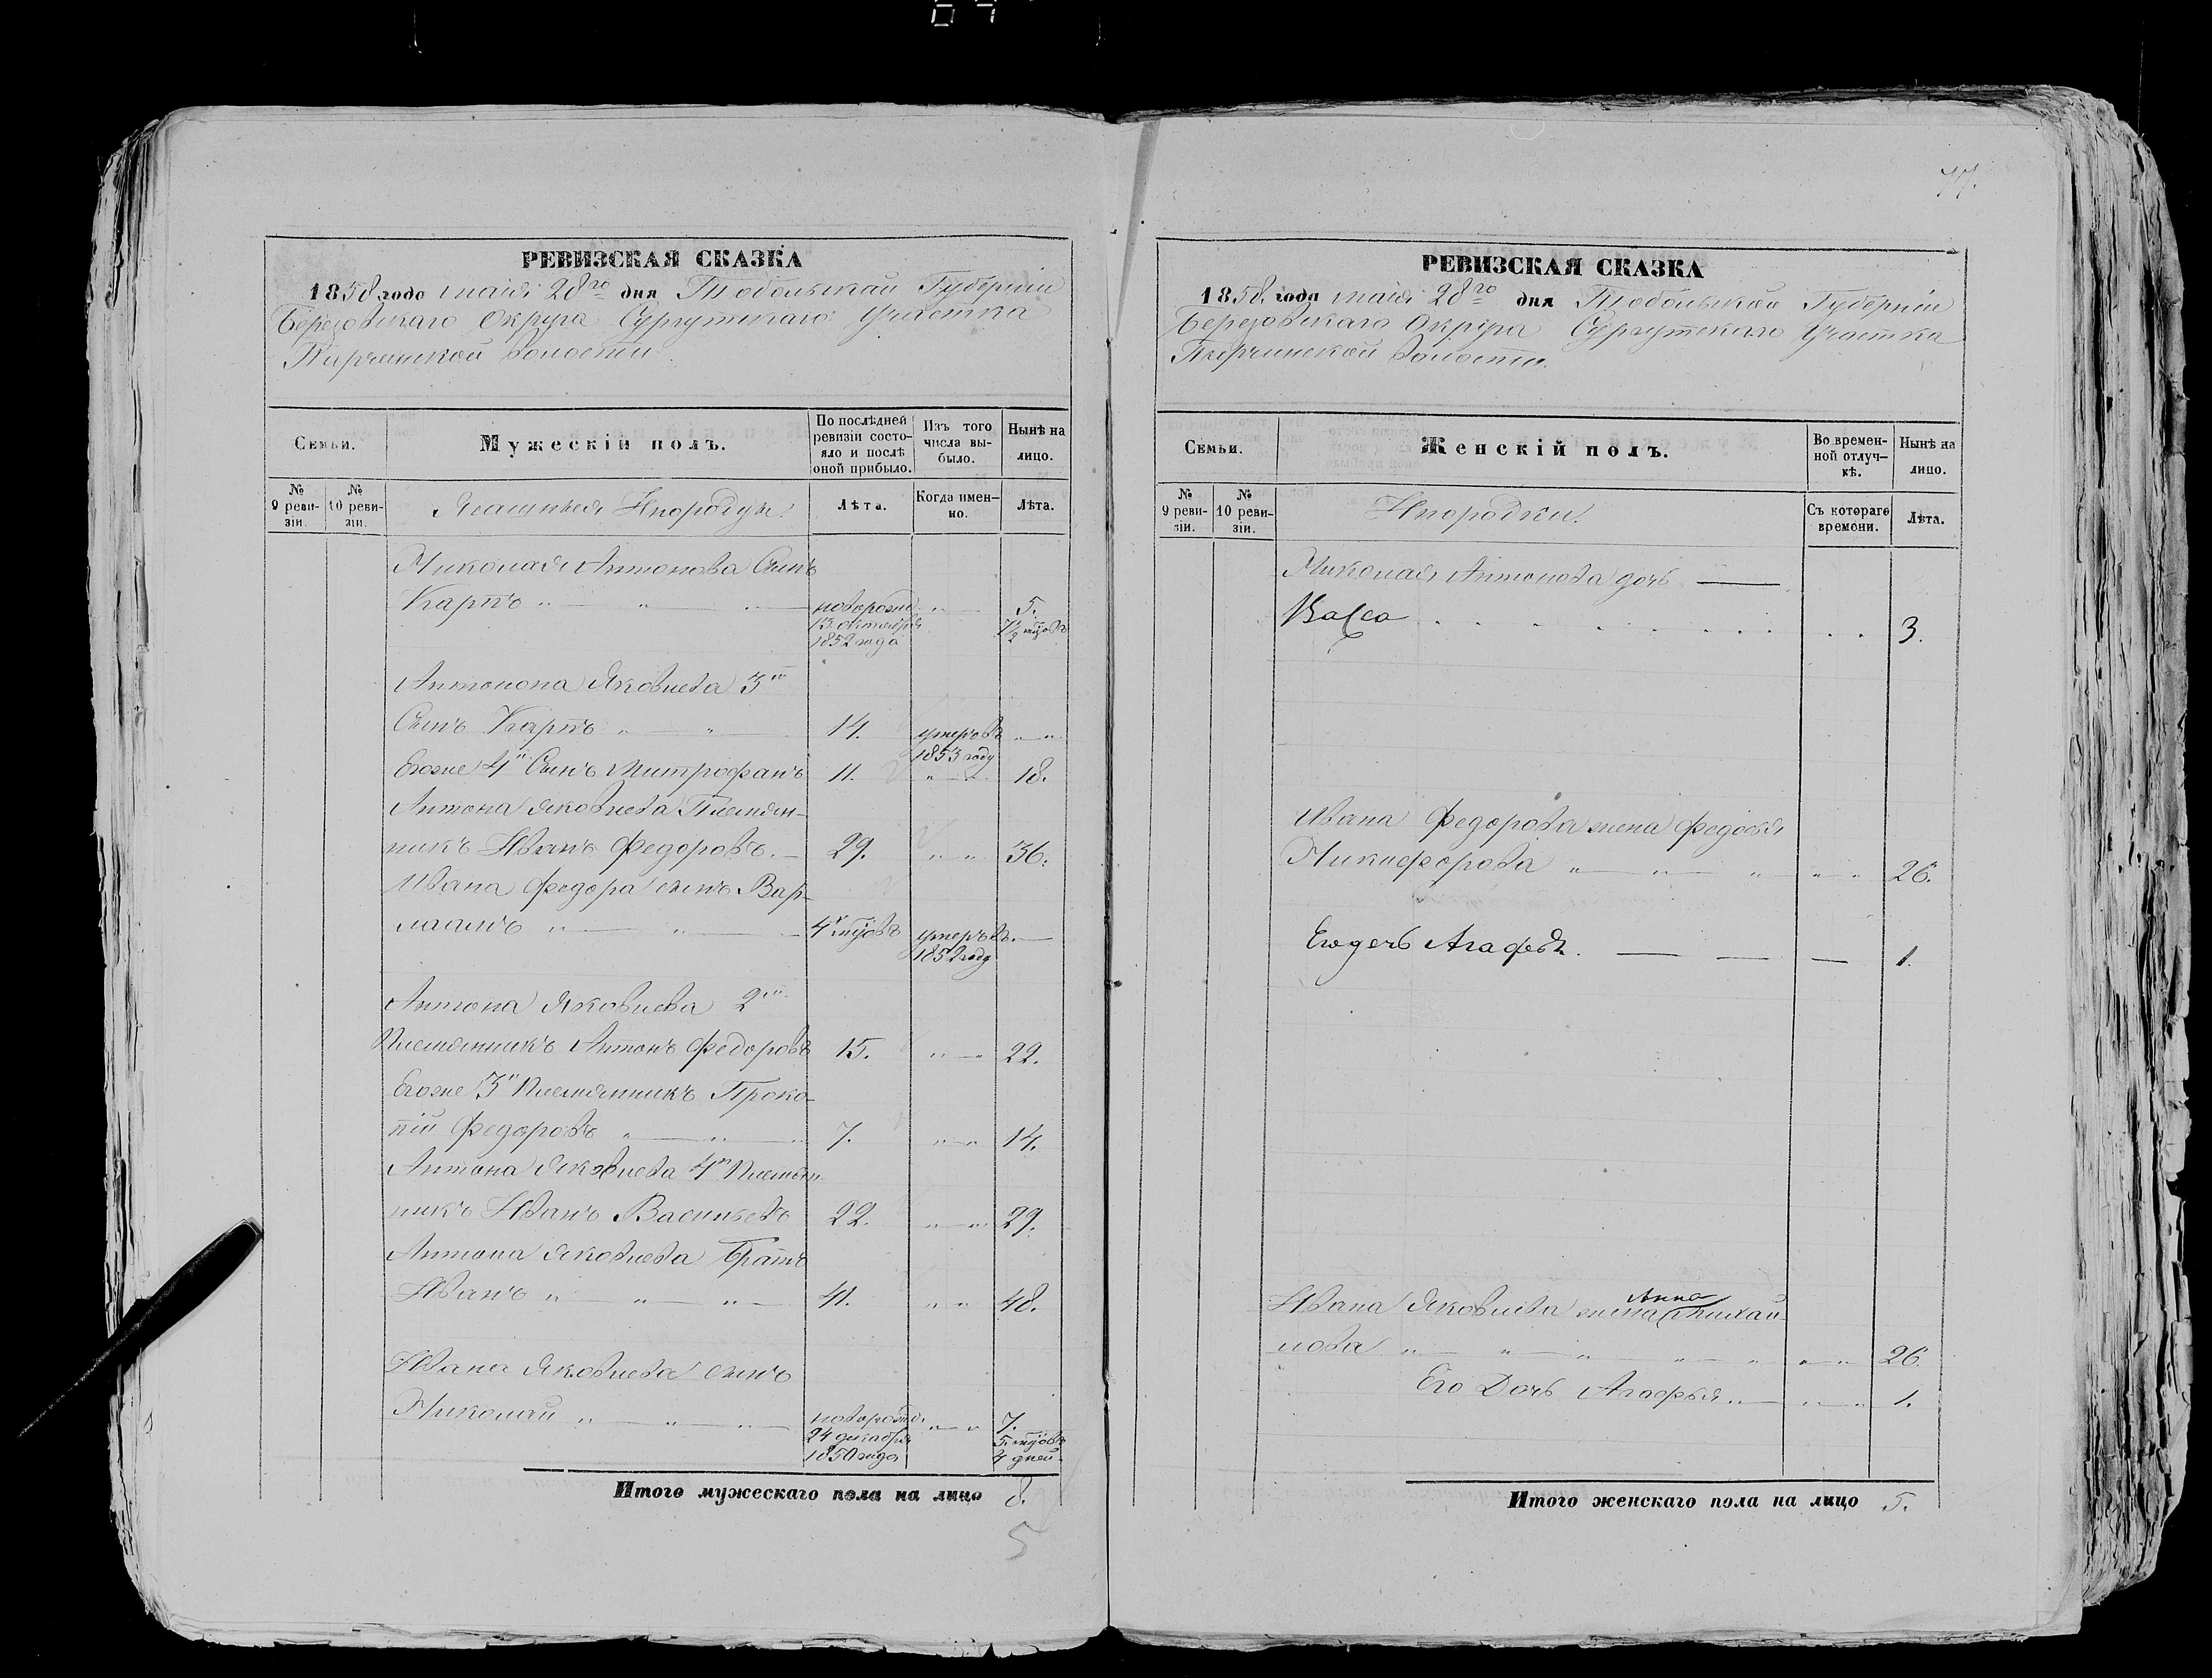 77.
РЕВИЗСКАЯ СКАЗКА
1858 года маія 28го дня Тобольской Губерніи
Березовскаго Округа Сургутскаго Участка
Пирчинской волости
Семьи.
Мужескій полъ.
По послѣдней ревизіи состояло и послѣ оной прибыло.
Изъ того числа выбыло.
Нынѣ на лицо.
№ 9 ревизіи.
№ 10 ревизіи.
Ясашныя Инородцы
Лѣта.
Когда именно.
Лѣта.
Николая Антонова Сынъ
Карпъ " — " — новорожд. " — 5.
13 октября 7½ мцовъ
1852 года
Антонова Яковлева 3й
Сынъ Карпъ " — " 14. умеръ въ " "
1853 году
Егоже 4й Сынъ Митрофанъ 11. " — " 18.
Антона Яковлева Племян-
никъ Иванъ Федоровъ. — 29. " " 36.
Ивана Федора сынъ Вар-
лаамъ " — " — 4 мцовъ умеръ въ —
1852 году
Антона Яковлева 2й
Племянникъ Антонъ Федоровъ 15. " — " 22.
Егоже 3й Племянникъ Проко-
пій Федоровъ " — " — " 7. " — " 14.
Антона Яковлева 4й Племян-
никъ Иванъ Васильевъ 22. " — " 29.
Антона Яковлева братъ
Иванъ " — " — " — 41. " " 48.
Ивана Яковлева сынъ
Николай " — " — " — новорожд. " — " 7.
24 декабря 5. мцовъ
1850 года 4 дней
Итого мужескаго пола на лицо 8.
5
РЕВИЗСКАЯ СКАЗКА
1858. года маія 28го дня Тобольской Губерніи
Березовскаго Округа Сургутскаго Участка
Пирчинской волости.
Семьи.
Женскій полъ.
Во временной отлучкѣ.
Нынѣ на лицо.
№ 9 ревизіи.
№ 10 ревизіи.
Инородки.
Съ котораго времени.
Лѣта.
Николая Антонова дочь —
Васса . . . . . . . . . 3.
Ивана Федорова жена Федосья
Никифорова " — " — " " — " 26.
Его дочь Агафья. — — — 1.
Анна
Ивана Яковлева жена Михай-
лова " — " — " — " — " " — " 26.
Его Дочь Агафья " — " — " 1.
Итого женскаго пола на лицо 5.